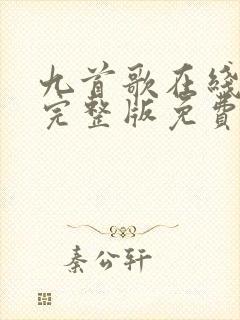 九首歌在线
完整版免费
秦公轩